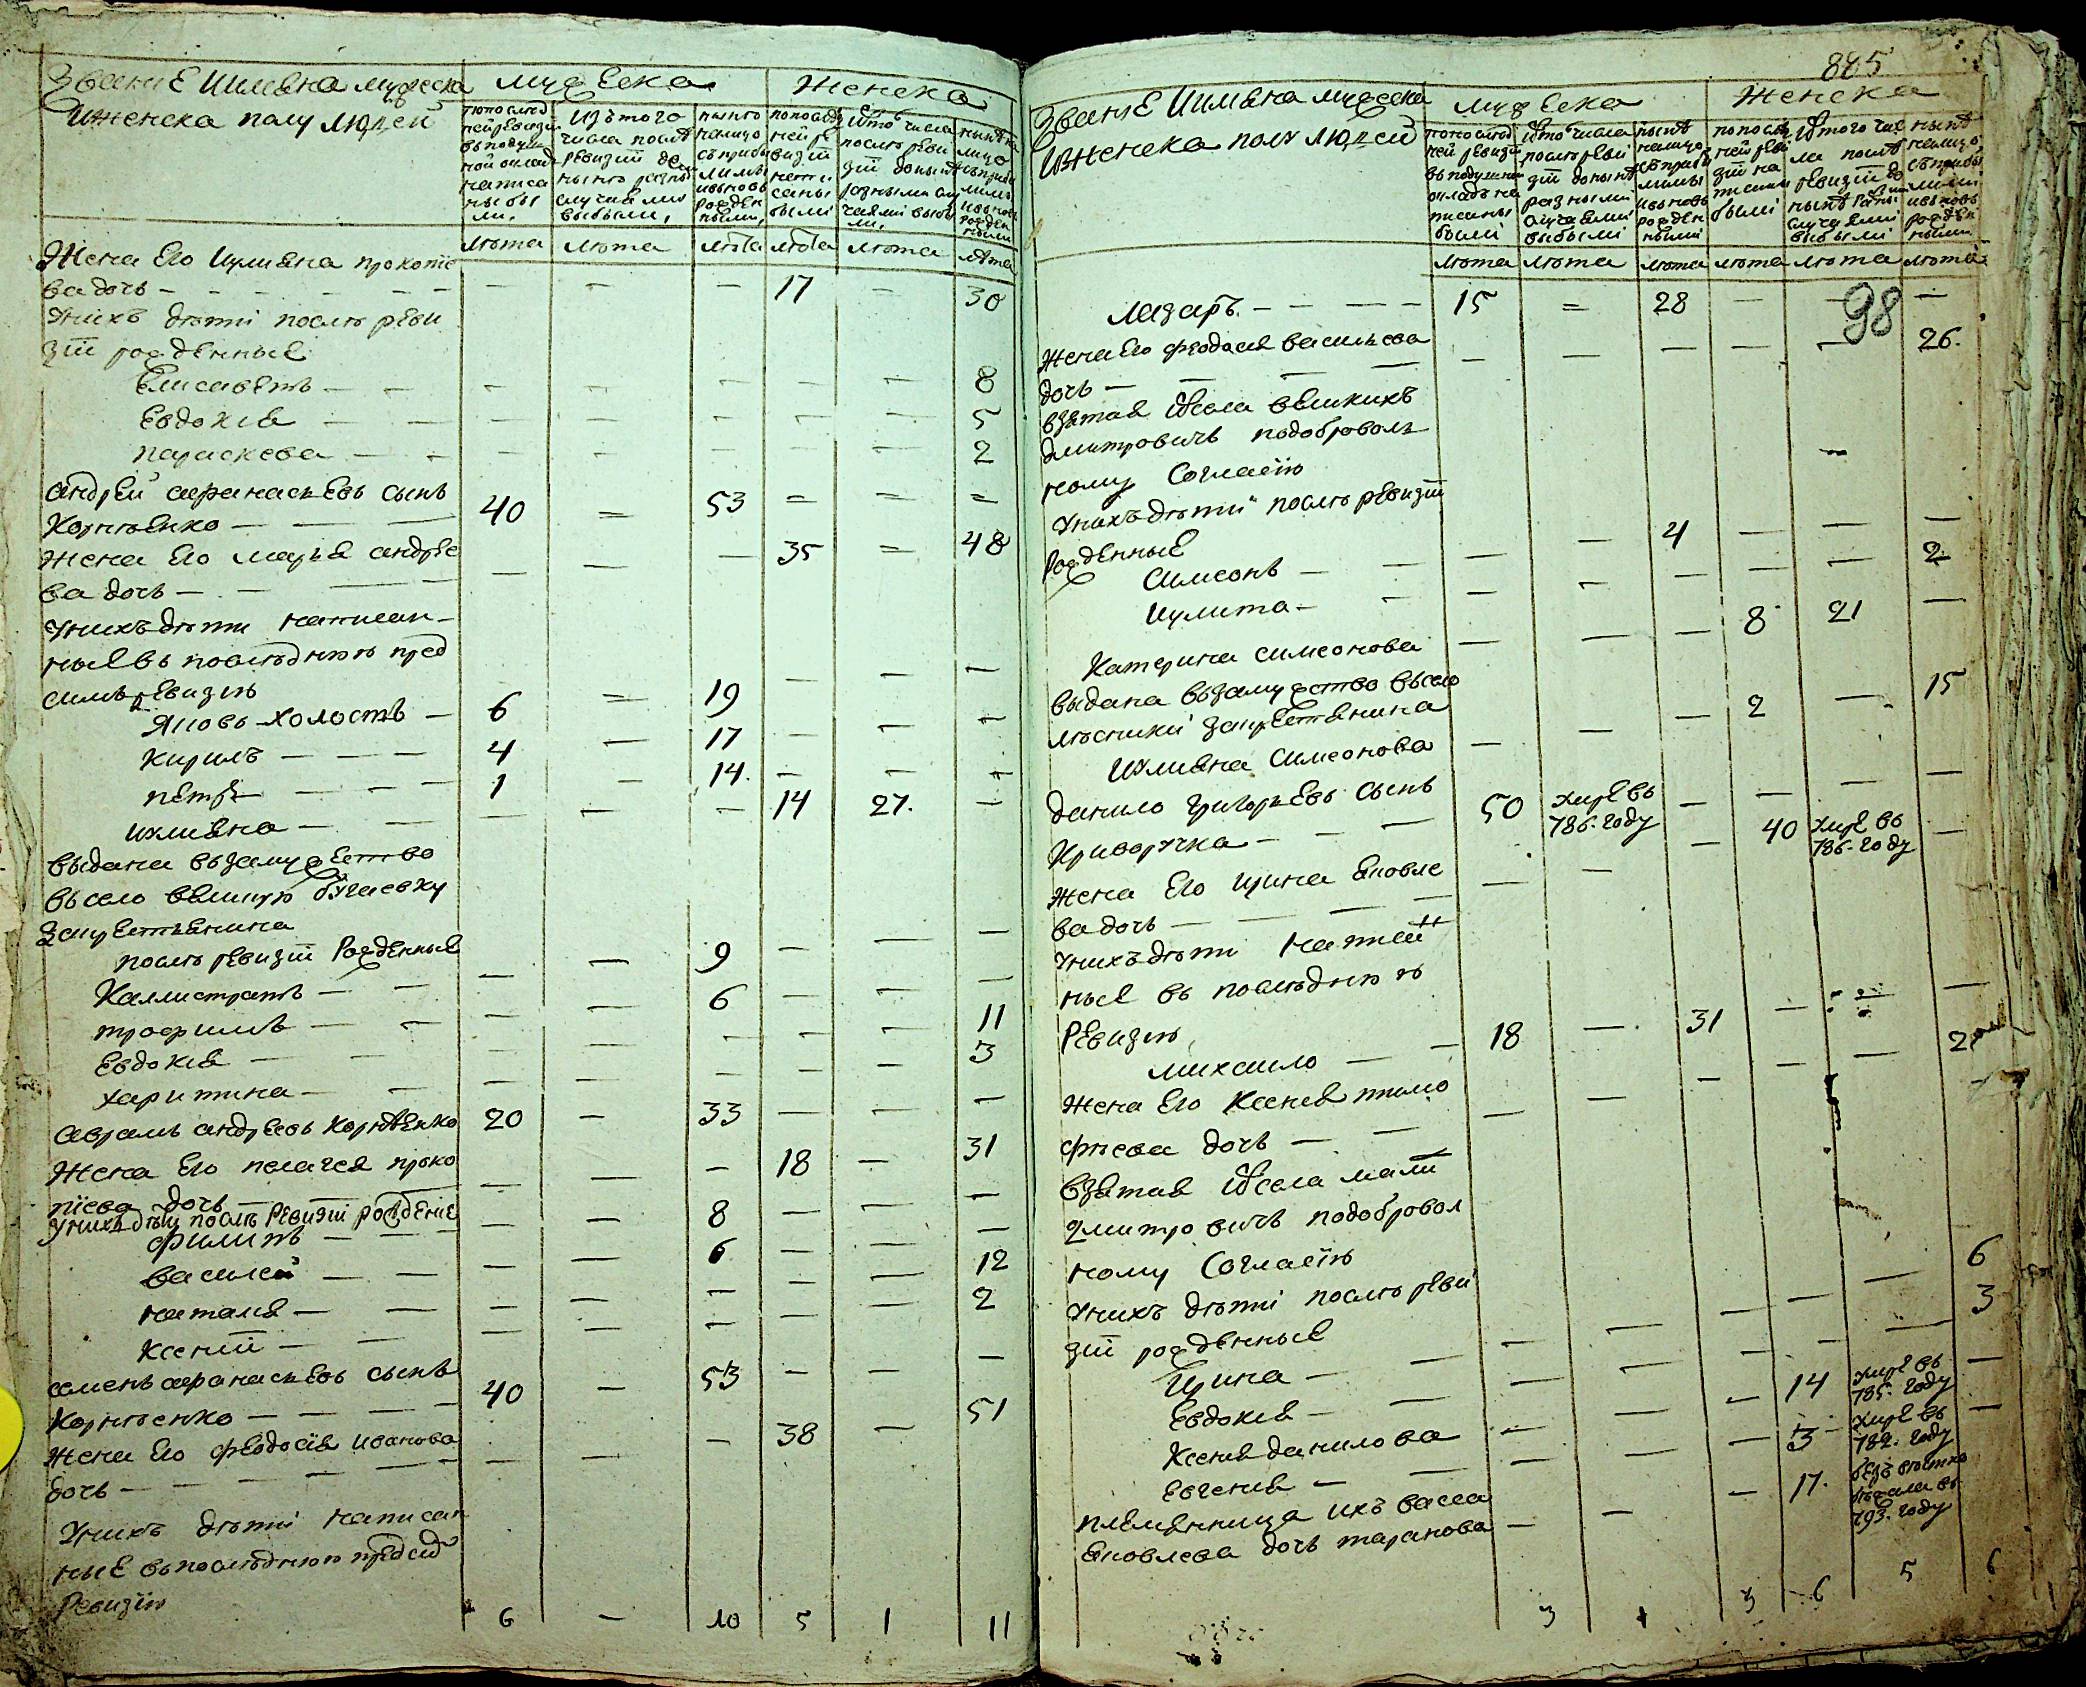 Званıе иимѣна мужеска
иженска полу людей
мужеска
женска
попослѣд
ней ревизıи
вподуш
ной оклад
написа
ны бы
ли,
изъ того
числа послѣ
ревизıи до
нынѣ разны
случаями
выбыли,
нынѣ
налицо
съприбы
лыми
ивновь
рожден
ными,
попослѣд
ней ре
визıи
напи
саны
были
Изтого числа
послѣ реви
зıи донынѣ
разными слу
чаями выбы
ли,
нынѣ на
лицо
съприбы
лыми
ивновь
рожден
ными
лѣта лѣта лѣта лѣта лѣта лѣта
Жена его Иулиана прокопıе
ва дочь — — — — 17 — 30
Унихъ дѣти послѣ реви
зıи рожденные
Елисаветъ — — — — — — 8
Евдокıя — — — — — 5
параскева — — — — — 2
андрей афанасьевъ сынъ
Корнѣенко — 40 = 53 = = =
жена его марья андрее
ва дочь — — — 35 = 48
Унихъ дѣти написан-
ные въ послѣднюю пред
симъ ревизıю
Яковъ холостъ — 6 = 19 — — —
Кирилъ — — — 4 — 17 — — —
петръ — — — 1 — 14. — — —
иулиана — — — — 14 27. —
выдана взамужество
всело великую бугаевку
закрестьянина
послѣ ревизıи рожденные
Каллистратъ — — — — 9 — — —
трофимъ — — — — 6 — — —
Евдокıя — — — — — 11
харитина — — — — — 3
аврамъ андреевъ корнѣенко 20 — 33 — — —
Жена его пелагея проко
пıева дочь — — — 18 — 31
Унихъ дѣти послѣ ревизıи рожденые
филипъ — — — — 8 — — —
василей — — — — 6 — — —
наталя — — — — — 12
ксенıи — — — — — 2
семенъ афанасьевъ сынъ
Корнѣенко — — — 40 — 53 — — —
жена его феодосıя иванова
дочь — — — — 38 — 51
Унихъ дѣти написан
ные въ послѣднюю председ
ревизıю
6 — 10 5 1 11
885
Званıе иимѣна мужеска
иженска полу людей
мужеска
женска
попослѣд
ней ревизıи
вподушной
окладъ на
писаны
были
Изтого числа
послѣ реви
зıи донынѣ
разными
случаями
выбыли
нынѣ
налицо
съприбы
лыми
ивновь
рожден
ными
попослѣд
ней реви
зıи на
писаны
были
Изтого чис
ла послѣ
ревизıи до
нынѣ разны
случаями
выбыли
нынѣ
налицо,
съприбы
лыми
ивновь
рожден
ными
лѣта лѣта лѣта лѣта лѣта лѣта
98
Лазарь. — — — — 15 = 28 — — —
жена его феодосıя васильева
дочь — — — — — — 26.
взятая изсела великихъ
дмитровичъ подобровол
ному согласıю
Унихъ дѣти послѣ ревизıи
рожденные
симеонъ — — — — 4 — — —
иулита — — — — — — 2
Катерина симеонова — — — 8 21 —
выдана взамужество всело
лѣсники закрестьянина
Иулиана симеонова — — — 2 — 15
данило григорьевъ сынъ
Криворучка — — — 50 умре въ 786. году — — — —
жена его ирина яковле
ва дочь — — — — 40 умре въ 786. году —
Унихъ дѣти написан
ные въ послѣднюю
ревизıю
михаило — — 18 — 31 — — —
жена его ксенıя тимо
фѣева дочь — — — — — 2
взятая изсела малы
дмитровичъ подобровол
ному согласıю
Унихъ дѣти послѣ реви
зıи рожденные
Ирина — — — — — — 6
Евдокıя — — — — — — 3
ксенıя данилова — — — 14 умре въ 785. году —
Евгенıя — — — — 3 умре въ 782. году —
племянница ихъ васса
яковлева дочь таранова — — — 17. безъ вѣстно бежала въ 793. году
3 1 3 6 5 6